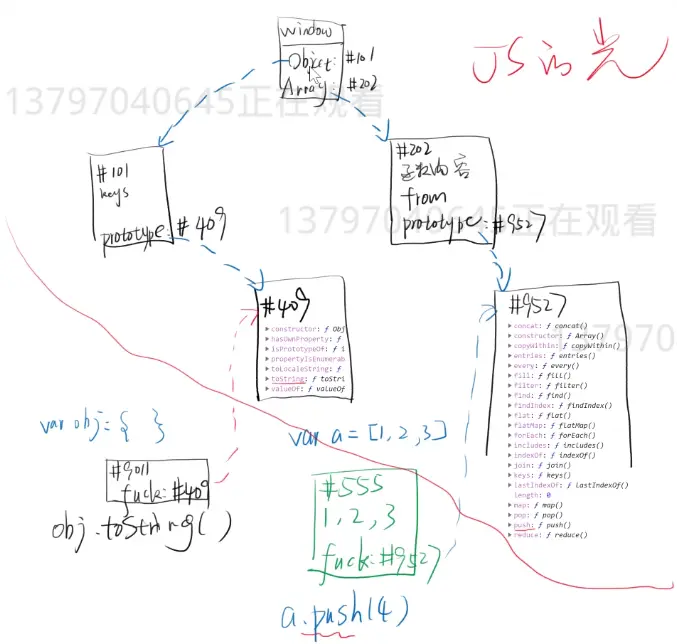 window
Object: #101
Array: #202
JS的光
13797040645正在观看
#101
keys
prototype: #409
#202
函数内容
from
prototype: #9527
13797040645正在观看
#409
constructor: ƒ Obj
hasOwnProperty: ƒ
isPrototypeOf: ƒ i
propertyIsEnumerab
toLocaleString: ƒ
toString: ƒ toStri
valueOf: ƒ valueOf
#9527
concat: ƒ concat()
constructor: ƒ Array()
copyWithin: ƒ copyWithin()
entries: ƒ entries()
every: ƒ every()
fill: ƒ fill()
filter: ƒ filter()
find: ƒ find()
findIndex: ƒ findIndex()
flat: ƒ flat()
flatMap: ƒ flatMap()
forEach: ƒ forEach()
includes: ƒ includes()
indexOf: ƒ indexOf()
join: ƒ join()
keys: ƒ keys()
lastIndexOf: ƒ lastIndexOf()
length: 0
map: ƒ map()
pop: ƒ pop()
push: ƒ push()
reduce: ƒ reduce()
var obj={ }
#9011
fuck: #409
obj.toString()
var a = [1,2,3]
#555
1,2,3
fuck: #9527
a.push(4)